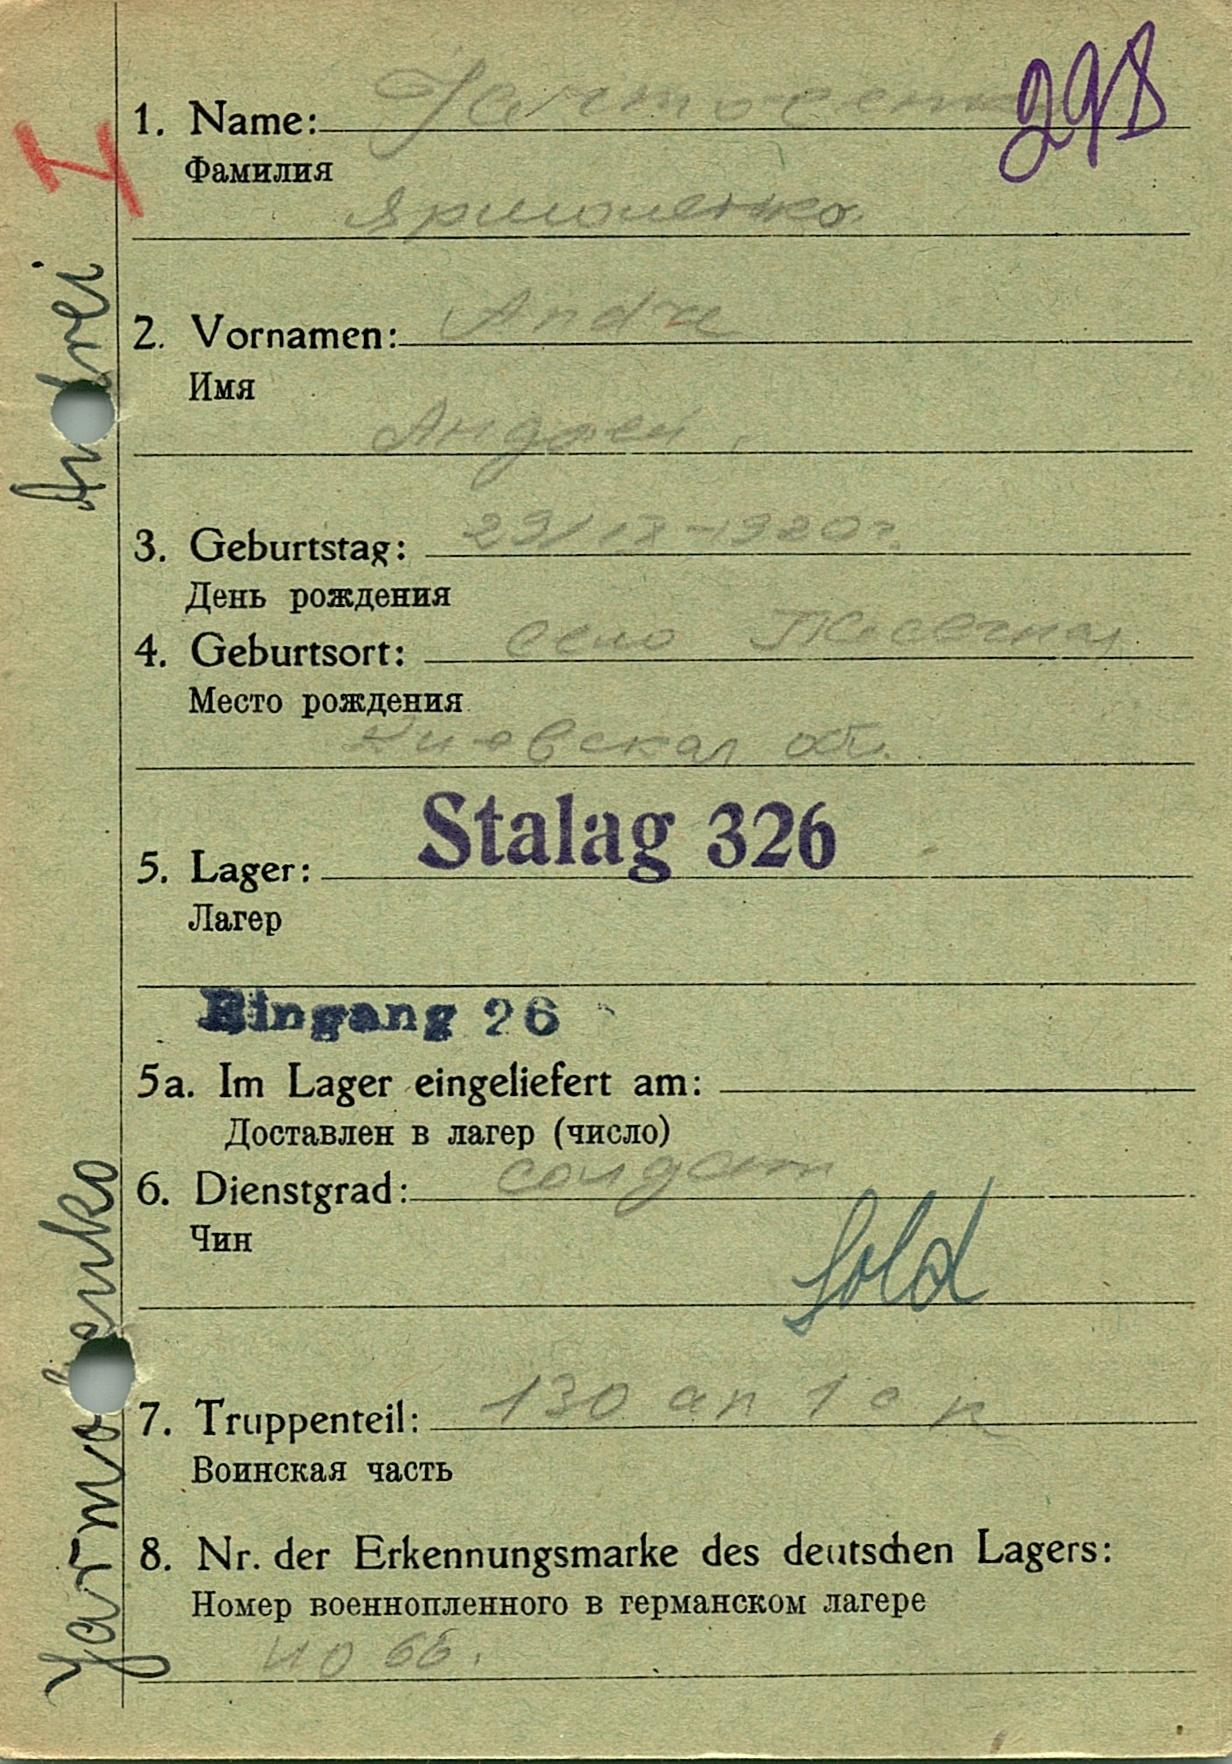 298
1. Name:
Фамилия
I
2. Vornamen: Andre
Имя
Андрей.
3. Geburtstag: 23/IX-1920г.
День рождения
4. Geburtsort: село
Место рождения
Киевская обл.
5. Lager: Stalag 326
Лагер
Eingang 26
5a. Im Lager eingeliefert am:
Доставлен в лагер (число)
6. Dienstgrad: солдат
Чин
Sold
7. Truppenteil: 130 ап 1
Воинская часть
8. Nr. der Erkennungsmarke des deutschen Lagers:
Номер военнопленного в германском лагере
Andrei